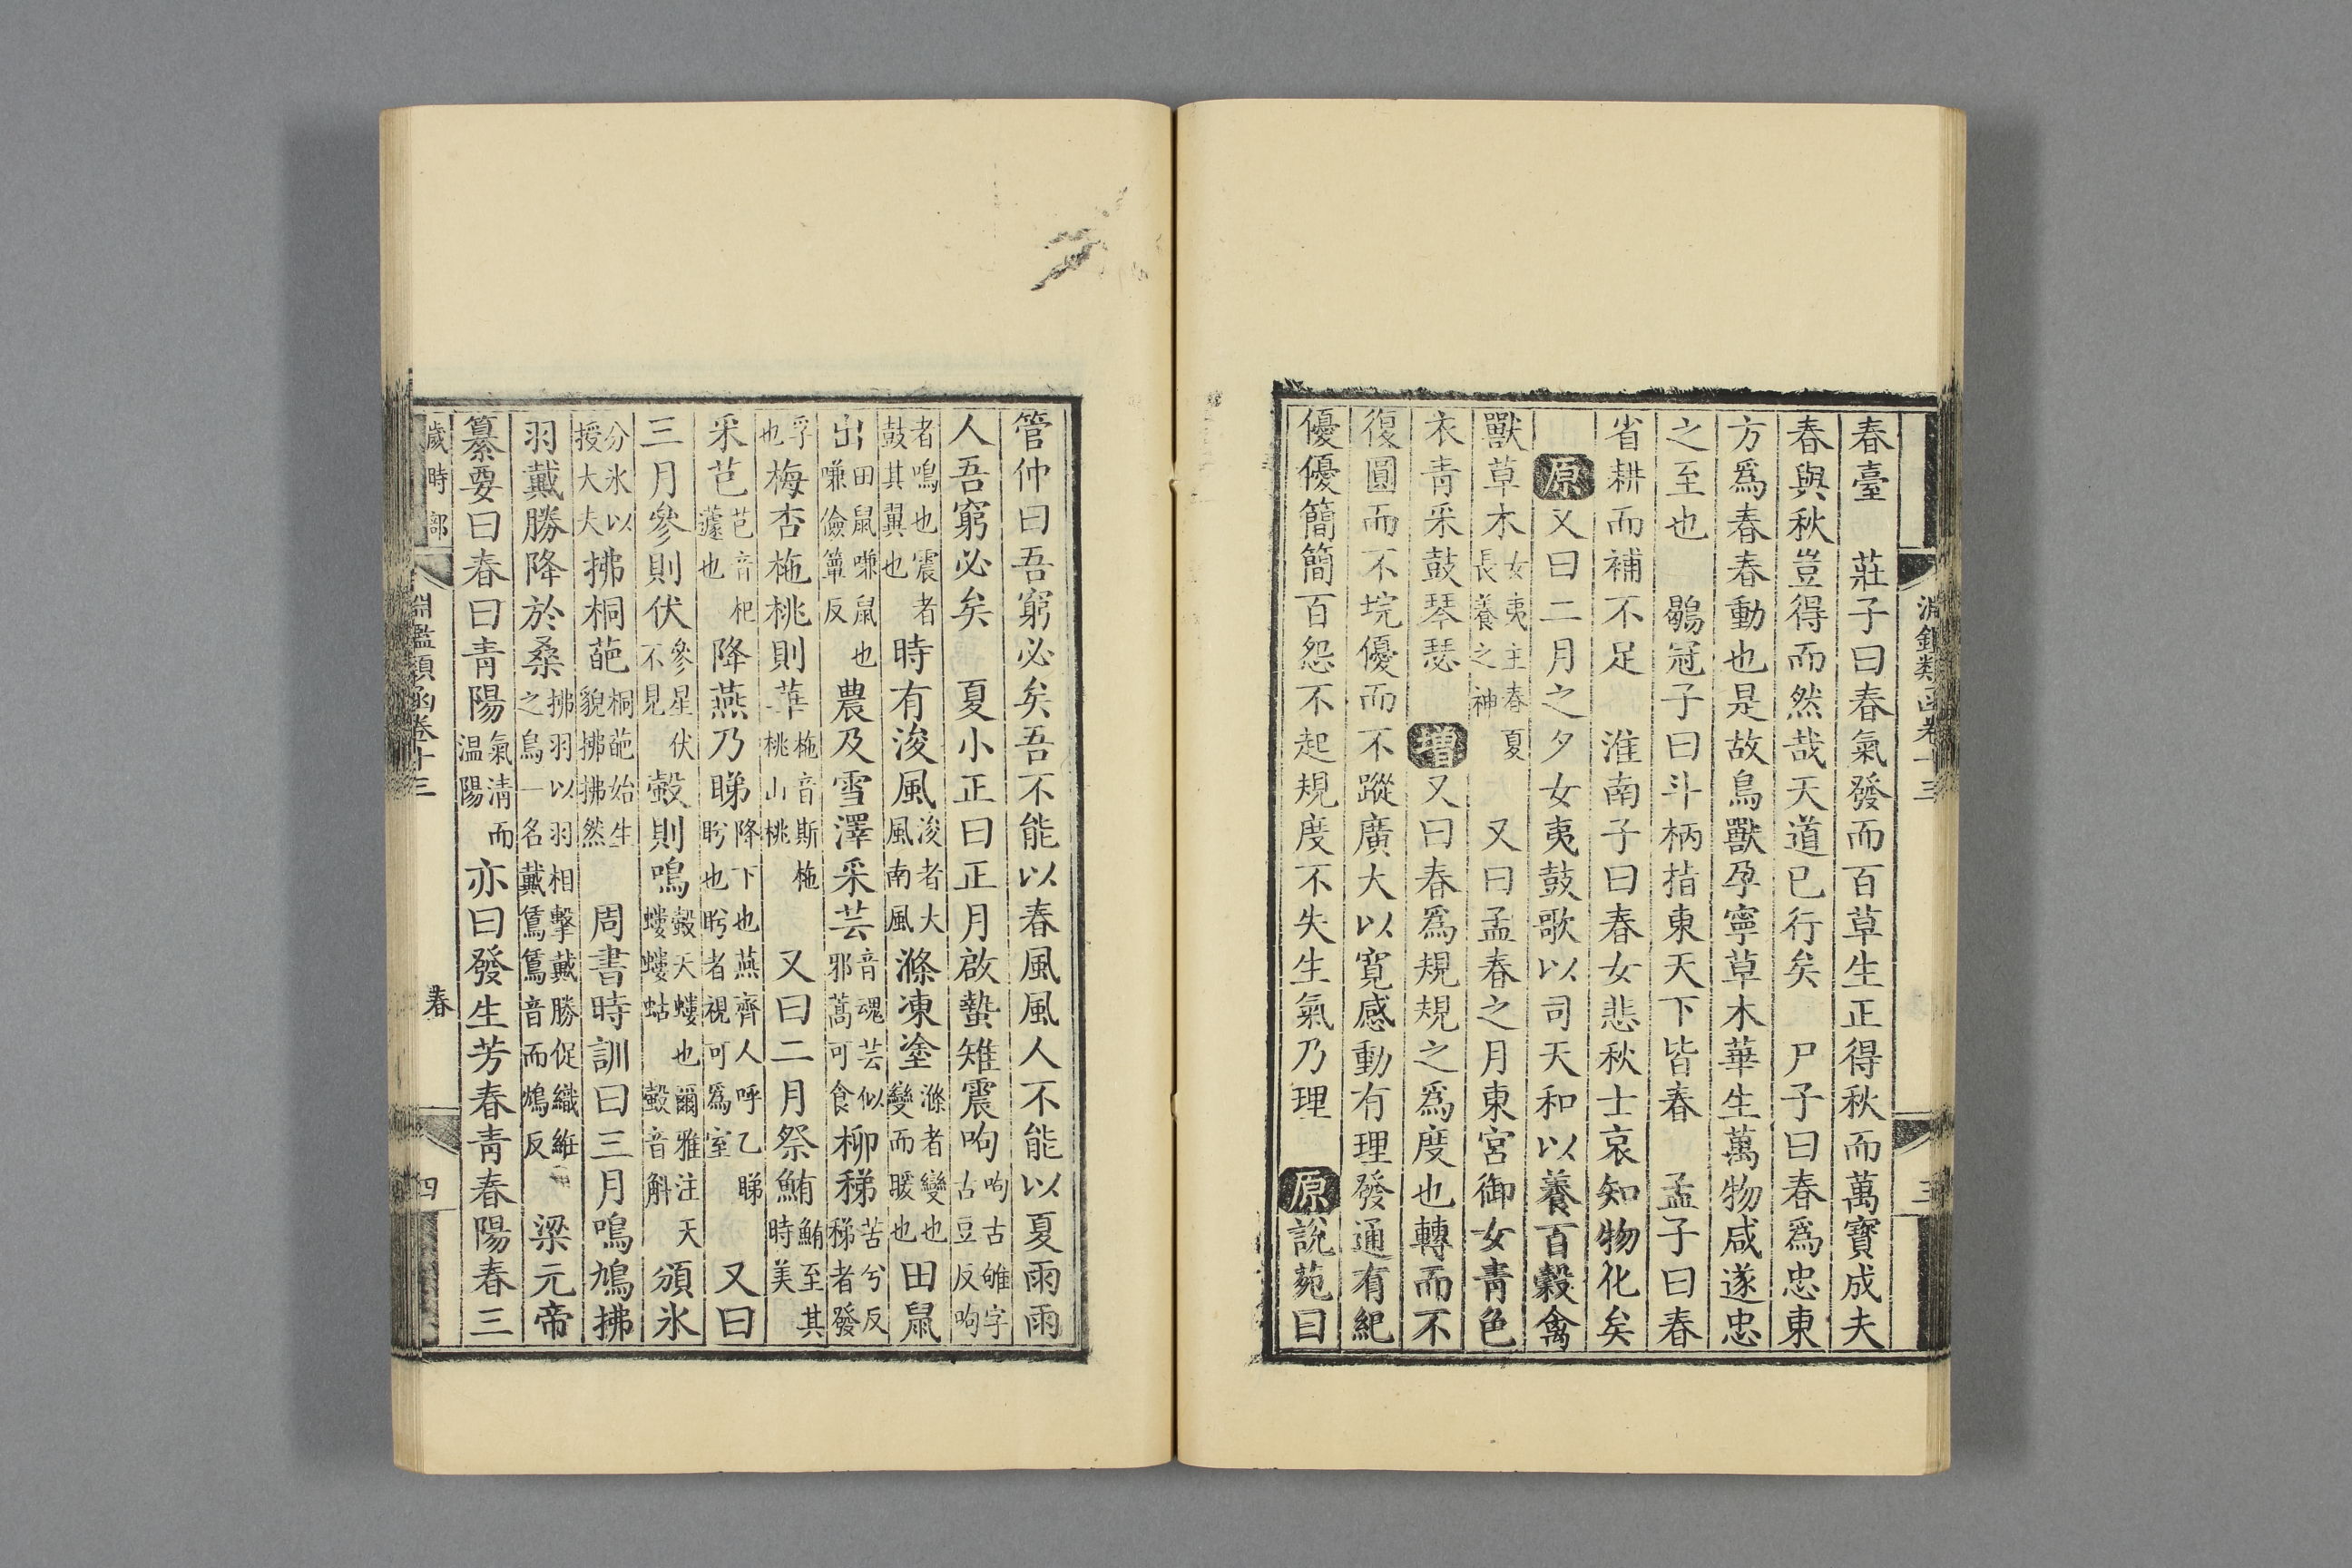 淵鑑類函卷十三 三
春臺 莊子曰春氣發而百草生正得秋而萬寶成夫
春與秋豈得而然哉天道已行矣 尸子曰春爲忠東
方爲春春動也是故鳥獸孕寧草木華生萬物咸遂忠
之至也 鶡冠子曰斗柄指東天下皆春 孟子曰春
省耕而補不足 淮南子曰春女悲秋士哀知物化矣
原又曰二月之夕女夷鼓歌以司天和以養百穀禽
獸草木女夷主春夏長養之神 又曰孟春之月東宮御女青色
衣青采鼓琴瑟 增又曰春爲規規之爲度也轉而不
復圓而不垸優而不蹤廣大以寬感動有理發通有紀
優優簡簡百怨不起規度不失生氣乃理 原說苑曰
管仲曰吾窮必矣吾不能以春風風人不能以夏雨雨
人吾窮必矣 夏小正曰正月啟蟄雉震呴呴古雊字古豆反呴
者鳴也震者鼓其翼也時有浚風浚者大風南風滌凍塗滌者變也變而暖也田鼠
出田鼠嗛鼠也嗛儉簟反農及雪澤采芸音魂芸似邪蒿可食柳稊苦兮反稊者發
孚也梅杏杝桃則華杝音斯杝桃山桃 又曰二月祭鮪鮪至其時美
采芑芑音杞蘧也降燕乃睇降下也燕齊人呼乙睇眄也眄者視可爲室 又曰
三月參則伏參星伏不見螜則鳴螜天螻也爾雅注天螻螻蛄螜音斛頒氷
分氷以授大夫拂桐葩桐葩始生貌拂拂然 周書時訓曰三月鳴鳩拂
羽戴勝降於桑拂羽以羽相擊戴勝促織維之鳥一名戴鵀鵀音而鴆反 梁元帝
纂要曰春曰青陽氣清而溫陽亦曰發生芳春青春陽春三
歲時部 淵鑑類函卷十三 春 四